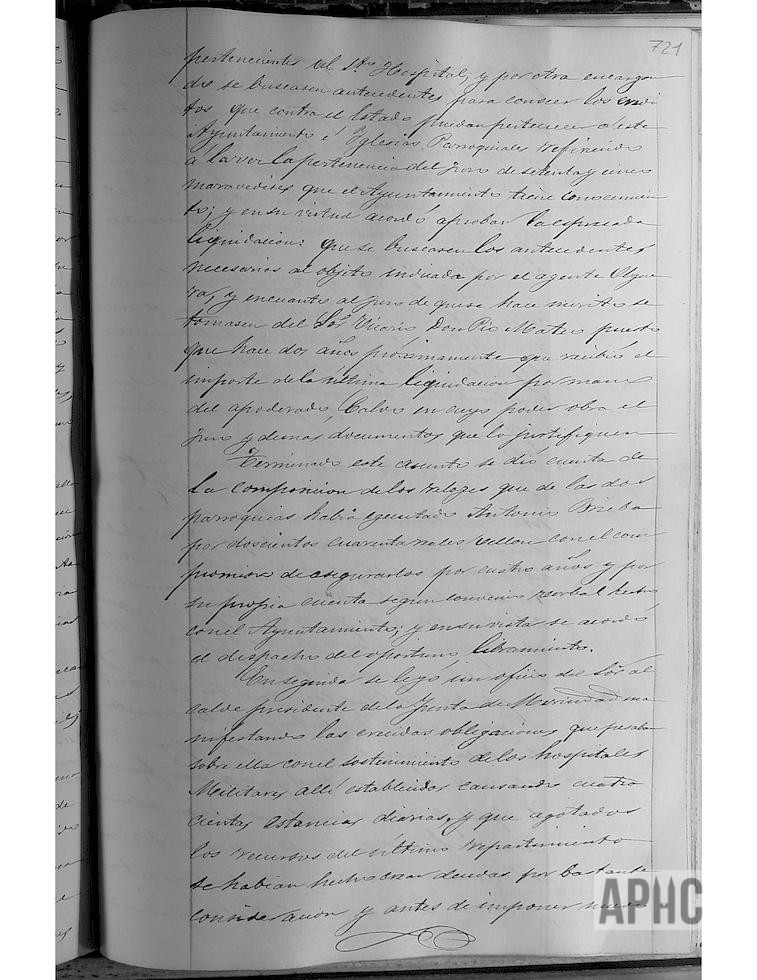 721
pertenecientes al Sto. Hospital; y por otra encargan
do se buscasen antecedentes para conocer los credi
tos que contra el Estado puedan pertenecer a este
Ayuntamiento é Yglesias Parroquiales refiriendo
á la vez la pertenencia del Juro de setenta y cinco
maravedises que el Ayuntamiento tiene conocimien
to; y en su virtud acordó aprobar la espresada
liquidacion: que se buscasen los antecedentes
necesarios al objeto indicado por el agente Olque
ra, y en cuanto al juro de que se hace merito se
tomasen del Sor. Vicario Don Pio Mateo puesto
que hace dos años próximamente que recibió el
importe de la última liquidacion por mano
del apoderado, Calvo en cuyo poder obra el
Juro y demas documentos que lo justifiquen
Terminado este asunto se dió cuenta de
la composicion de los reloges que de las dos
parroquias habia egecutado Antonio Brieba
por doscientos cuarenta reales vellon con el com
promiso de asegurarlos por cuatro años y por
su propia cuenta segun convenio verbal hecho
con el Ayuntamiento; y en su vista se acordó
el despacho del oportuno libramiento.
En seguida se leyó un oficio del Sor. al
calde presidente de la Junta de Merindad ma
nifestando las crecidas obligaciones que pesaban
sobre ella con el sostenimiento de los hospitales
Militares allí establecidos causando cuatro
cientas estancias diarias, y que agotados
los recursos del último repartimiento
se habian hecho crear deudas por bastante
consideracion y antes de imponer nuevo
APHC